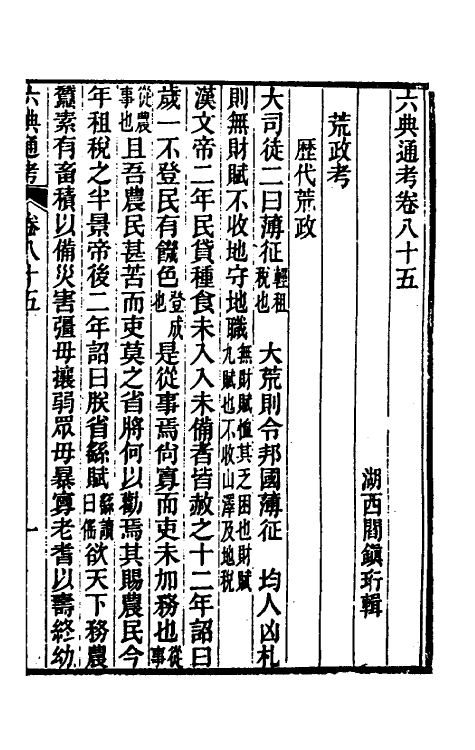 六典通考卷八十五
湖西閻鎭珩輯
荒政考
歴代荒政
大司徒二曰薄征輕租稅也　大荒則令邦國薄征　均人凶札
則無財賦不收地守地職無財賦恤其乏困也財賦九賦也不收山澤及地稅
漢文帝二年民貸種食未入入未備者皆赦之十二年詔曰
歲一不登民有饑色登成也是從事焉尙寡而吏未加務也從事
從農事也且吾農民甚苦而吏莫之省將何以勸焉其賜農民今
年租稅之半景帝後二年詔曰朕省繇賦繇讀曰傜欲天下務農
蠶素有畜積以備災害彊毋攘弱眾毋暴寡老耆以壽終幼
六典通考　卷八十五　一